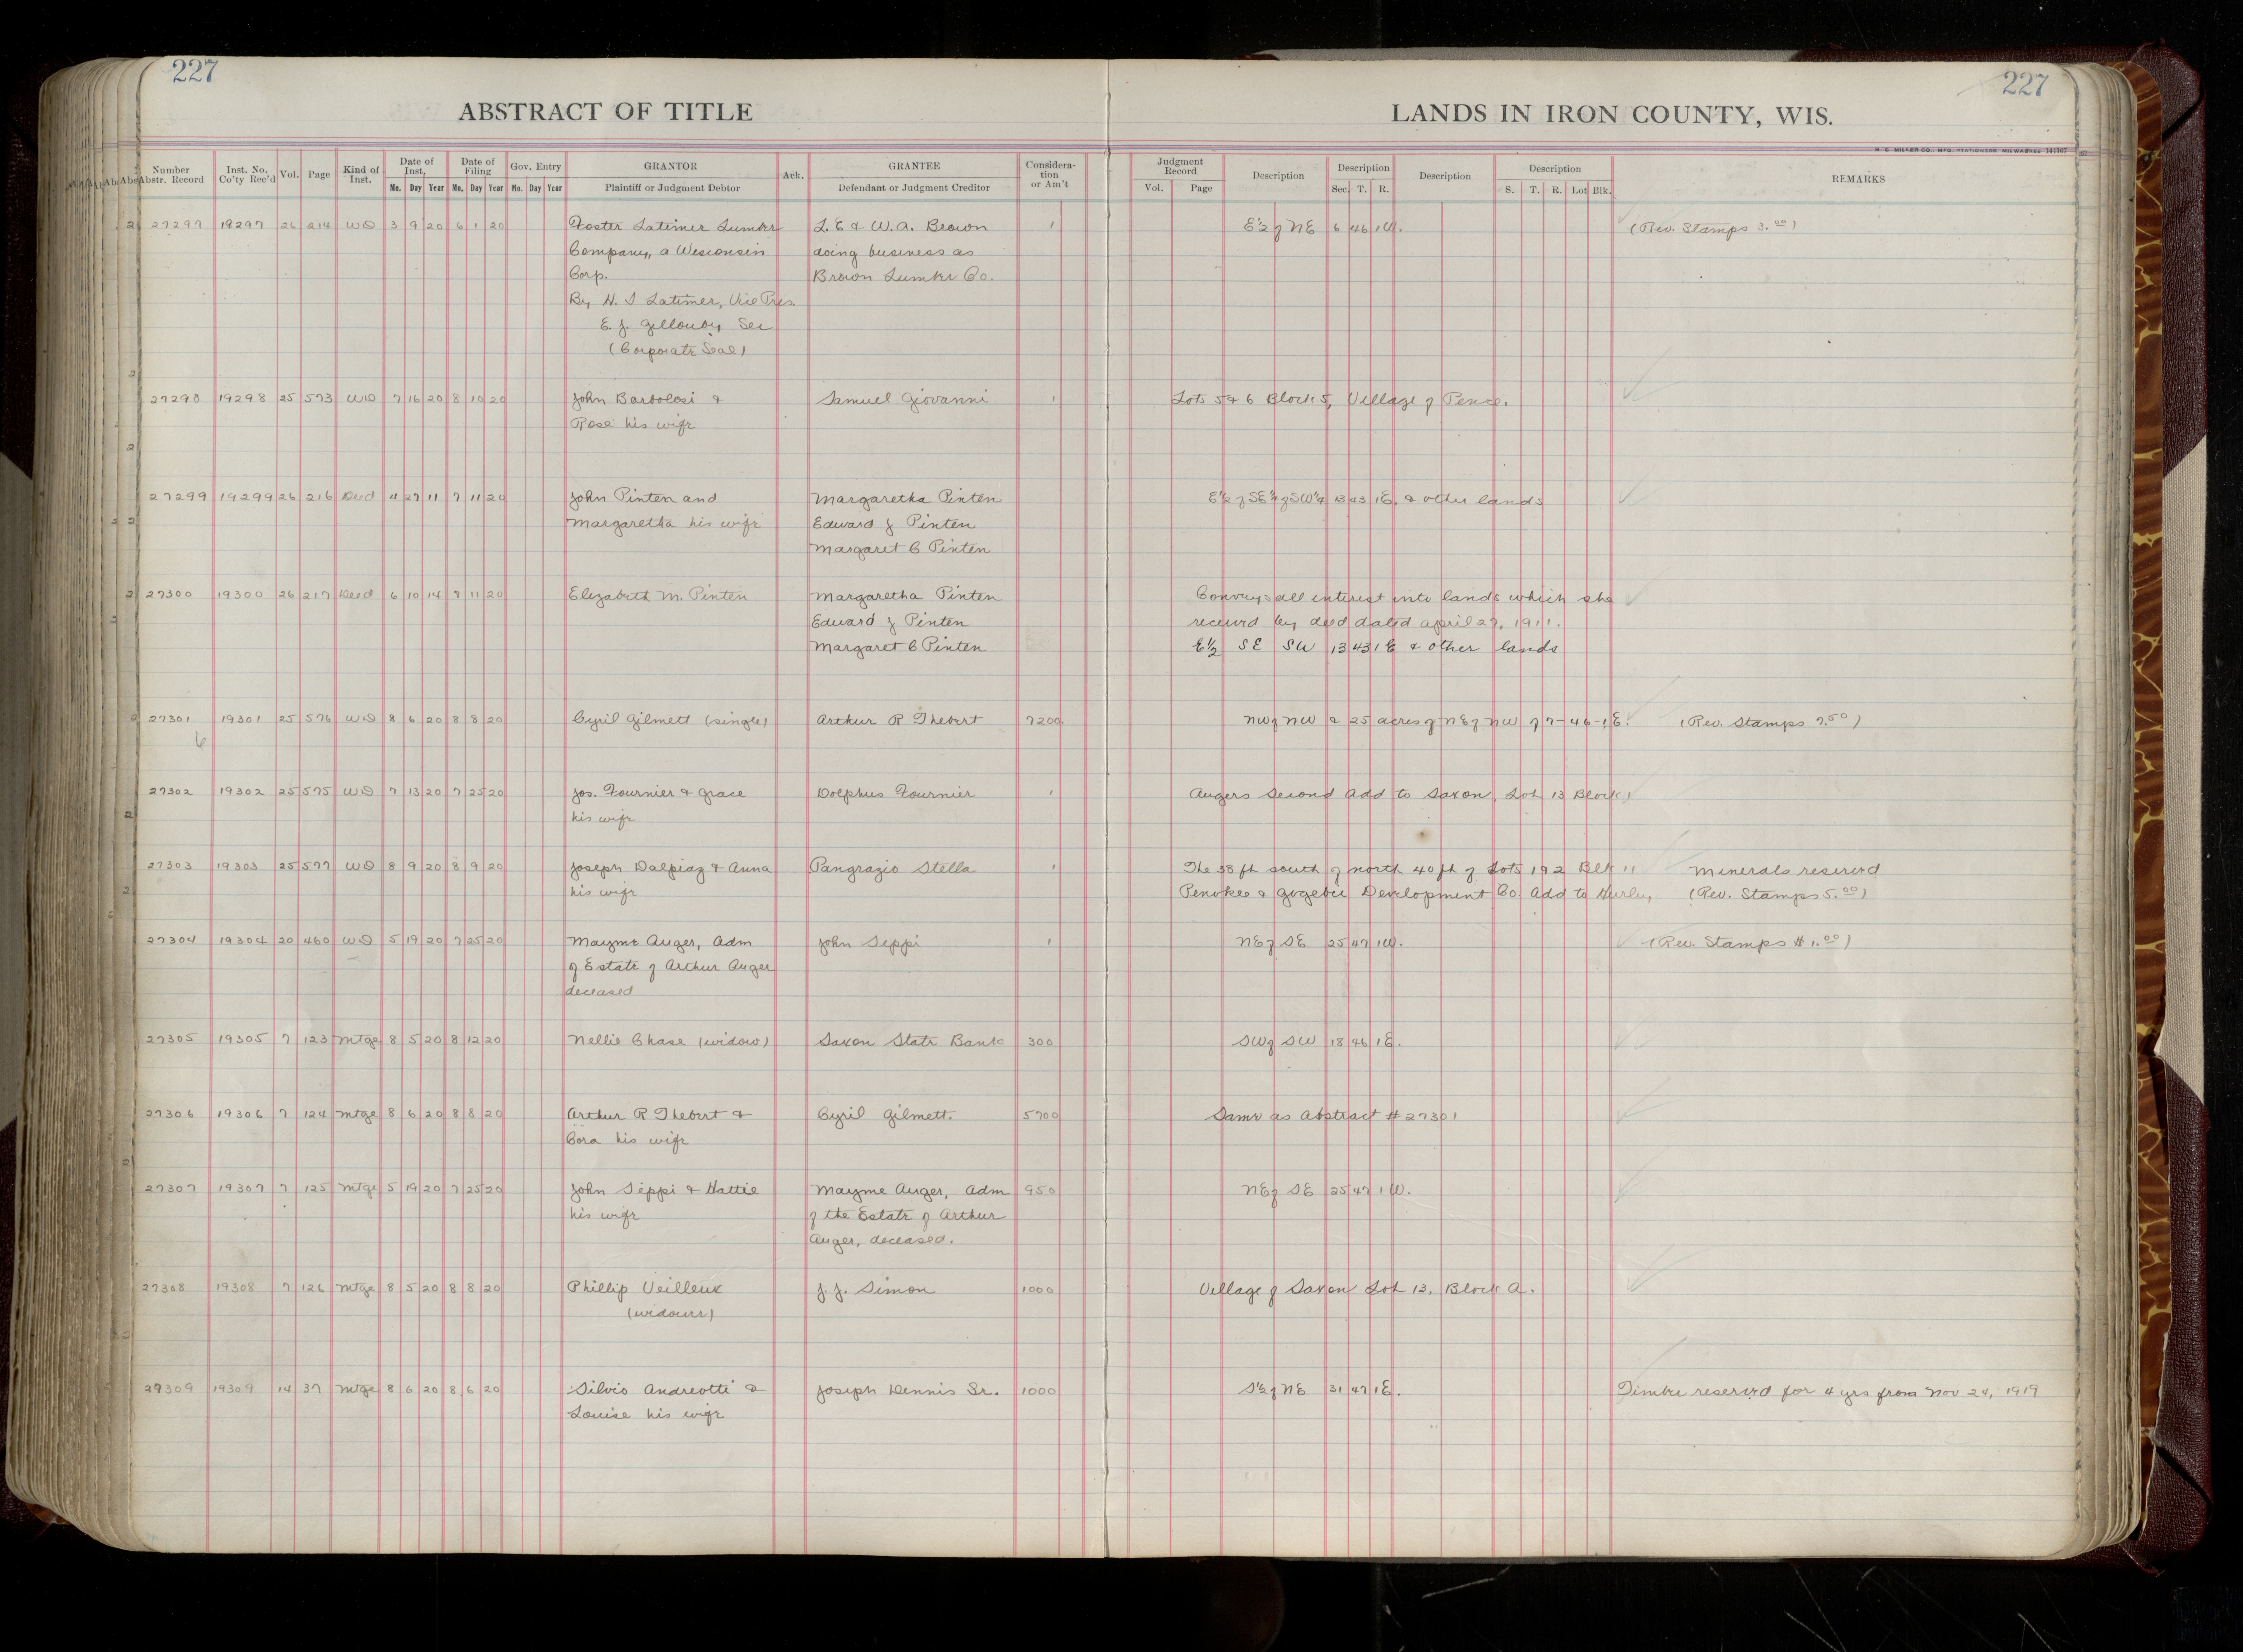 227
227
ABSTRACT OF TITLE
LANDS IN IRON COUNTY, WIS.
H. C. MILLER CO., MFG. STATIONERS MILWAUKEE 141167
Number Abstr. Record Inst. No. Co'ty Rec'd Vol. Page Kind of Inst. Date of Inst. Mo. Day Year Date of Filing Mo. Day Year Gov. Entry Mo. Day Year GRANTOR Plaintiff or Judgment Debtor Ack. GRANTEE Defendant or Judgment Creditor Considera-tion or Am't Judgment Record Vol. Page Description Description Sec. T. R. Description Description S. T. R. Lot Blk. REMARKS
27297 19297 26 214 WD 3 9 20 6 1 20 Foster Latimer Lumber L. E & W. A. Brown 1 E½ of NE 6 46 1W. (Rev. Stamps 3.00)
Company, a Wisconsin doing business as
Corp. Brown Lumber Co.
By H. S Latimer, Vice Pres.
E. J. Sec
(Corporate Seal)
27298 19298 25 573 WD 7 16 20 8 10 20 John Barbolosi & Samuel Giovanni 1 Lots 5 & 6 Block 5, Village of Pence.
Rose his wife
27299 19299 26 216 Deed 4 27 11 7 11 20 John Pinten and Margaretha Pinten E½ of SE¼ of SW¼ 13 43 1E. & other lands
Margaretha his wife Edward J Pinten
Margaret C Pinten
27300 19300 26 217 Deed 6 10 14 7 11 20 Elizabeth M. Pinten Margaretha Pinten Conveys all interest into lands which she
Edward J Pinten received by deed dated April 27, 1911.
Margaret C Pinten E½ SE SW 13 43 1E & other lands
27301 19301 25 576 WD 8 6 20 8 8 20 Cyril Gilmett (single) Arthur R Thebert 7200 NW of NW & 25 acres of NE of NW of 7-46-1E. (Rev. Stamps 7.50)
6
27302 19302 25 575 WD 7 13 20 7 25 20 Jos. Fournier & Grace Dolphus Fournier 1 Augers Second Add to Saxon, Lot 13 Block 1
his wife
27303 19303 25 577 WD 8 9 20 8 9 20 Joseph Dalpiaz & Anna Pangrazio Stella 1 The 38 ft south of north 40 ft of Lots 1 & 2 Blk 11 Minerals reserved
his wife Penokee & Gogebic Development Co. Add to Hurley (Rev. Stamps 5.00)
27304 19304 20 460 WD 5 19 20 7 25 20 Mayme Auger, Adm John Seppi 1 NE of SE 25 47 1W. (Rev. Stamps $1.00)
of Estate of Arthur Auger
deceased
27305 19305 7 123 Mtge 8 5 20 8 12 20 Nellie Chase (widow) Saxon State Bank 300 SW of SW 18 46 1E.
27306 19306 7 124 Mtge 8 6 20 8 8 20 Arthur R Thebert & Cyril Gilmett. 5700 Same as Abstract #27301
Cora his wife
27307 19307 7 125 Mtge 5 19 20 7 25 20 John Seppi & Hattie Mayme Auger, Adm 950 NE of SE 25 47 1W.
his wife of the Estate of Arthur
Auger, deceased.
27308 19308 7 126 Mtge 8 5 20 8 8 20 Phillip Veilleux J. J. Simon 1000 Village of Saxon Lot 13, Block A.
(widower)
27309 19309 14 37 Mtge 8 6 20 8 6 20 Silvio Andreotti & Joseph Dennis Sr. 1000 S½ of NE 31 47 1E. Timber reserved for 4 yrs from Nov 24, 1919
Louise his wife